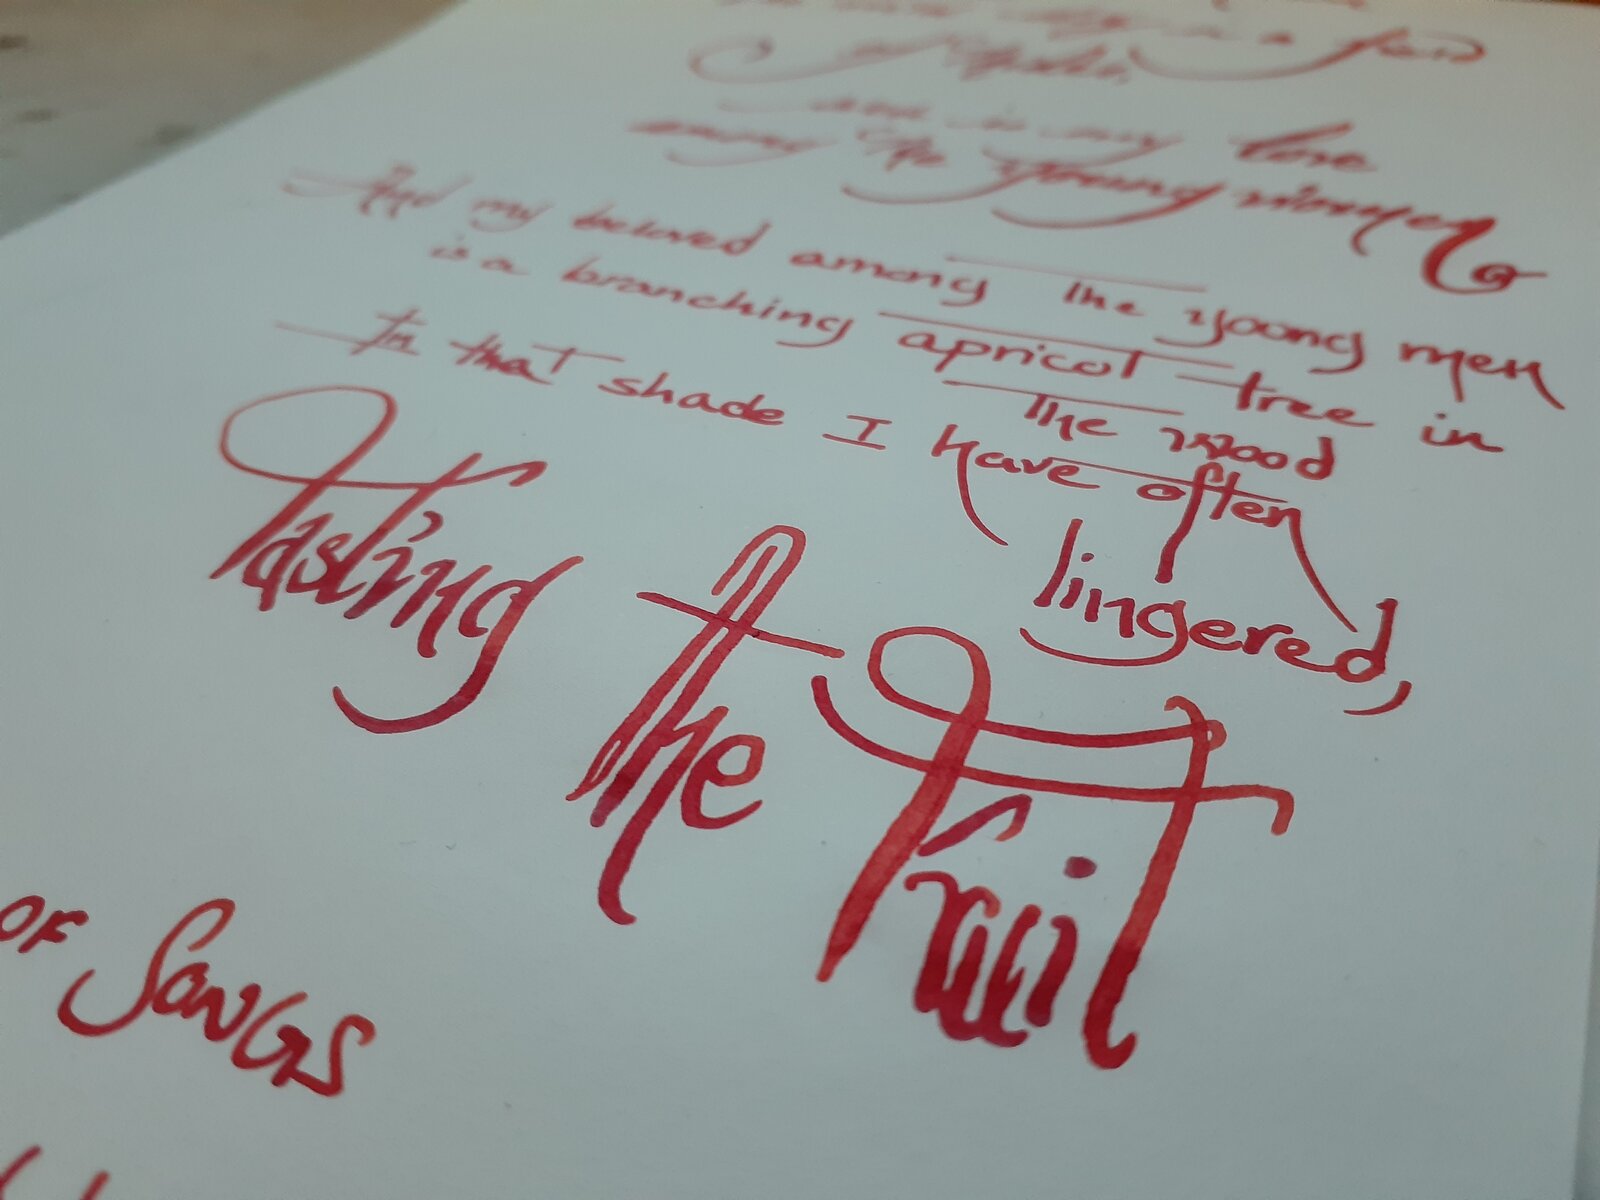 in a field
of thistles,
such is my love
among the young women
And my beloved among the young men
is a branching apricot tree in
the wood
In that shade I have often
lingered,
Tasting the Fruit
OF SONGS